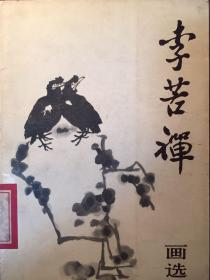 李苦禪
画选